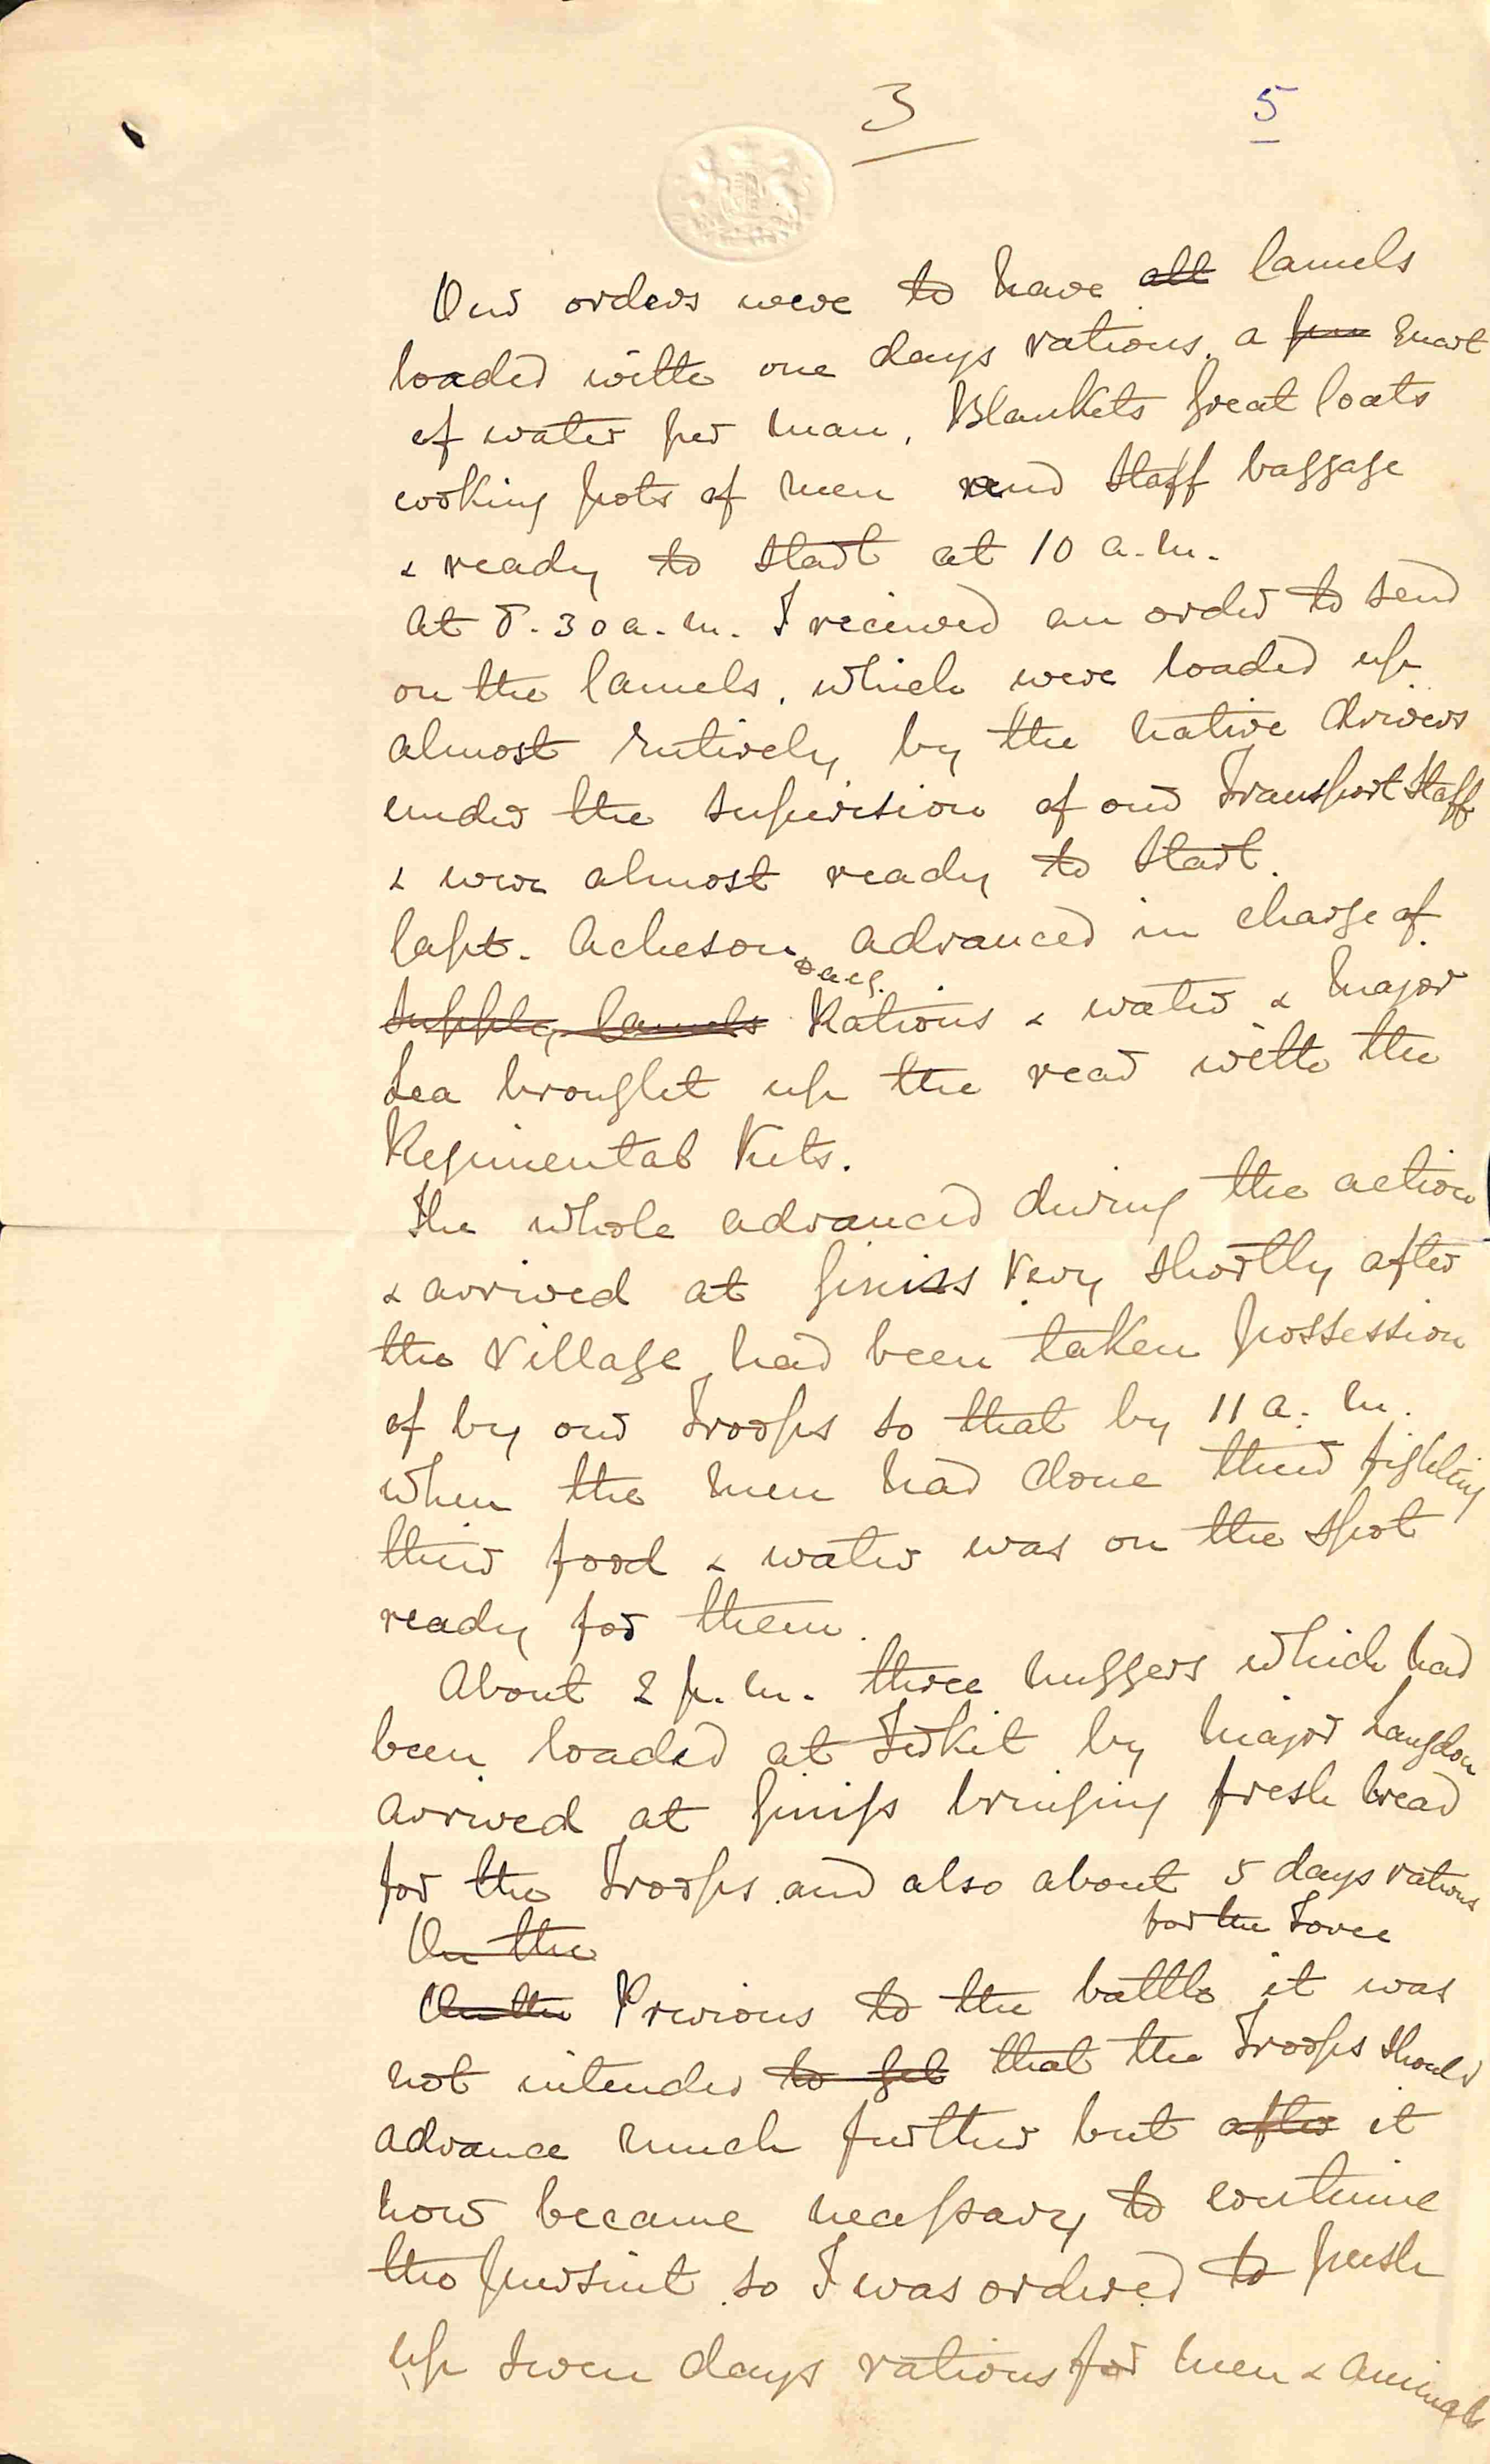 3 5
Our orders were to have all Camels
loaded with one days rations, a quart
of water per man, Blankets Great Coats
cooking pots of men and Staff baggage
& ready to start at 10 a.m.
At 8.30 a.m. I received an order to send
on the Camels, which were loaded up
almost entirely by the native drivers
under the supervision of our Transport Staff
& were almost ready to start.
Capt. Acheson, advanced in charge of
Supply Camels Rations & water & Major
Lea brought up the rear with the
Regimental Kits.
The whole advanced during the action
& arrived at Giniss very shortly after
the Village had been taken possession
of by our Troops so that by 11 a.m.
when the men had done their fighting
their food & water was on the spot
ready for them.
About 2 p.m. three nuggers which had
been loaded at Firket by Major Langdon
arrived at Giniss bringing fresh bread
for the Troops and also about 5 days rations
for the Force
On the
On the Previous to the battle it was
not intended to get that the Troops should
advance much further but after it
now became necessary to continue
the pursuit so I was ordered to push
up seven days rations for men & animals